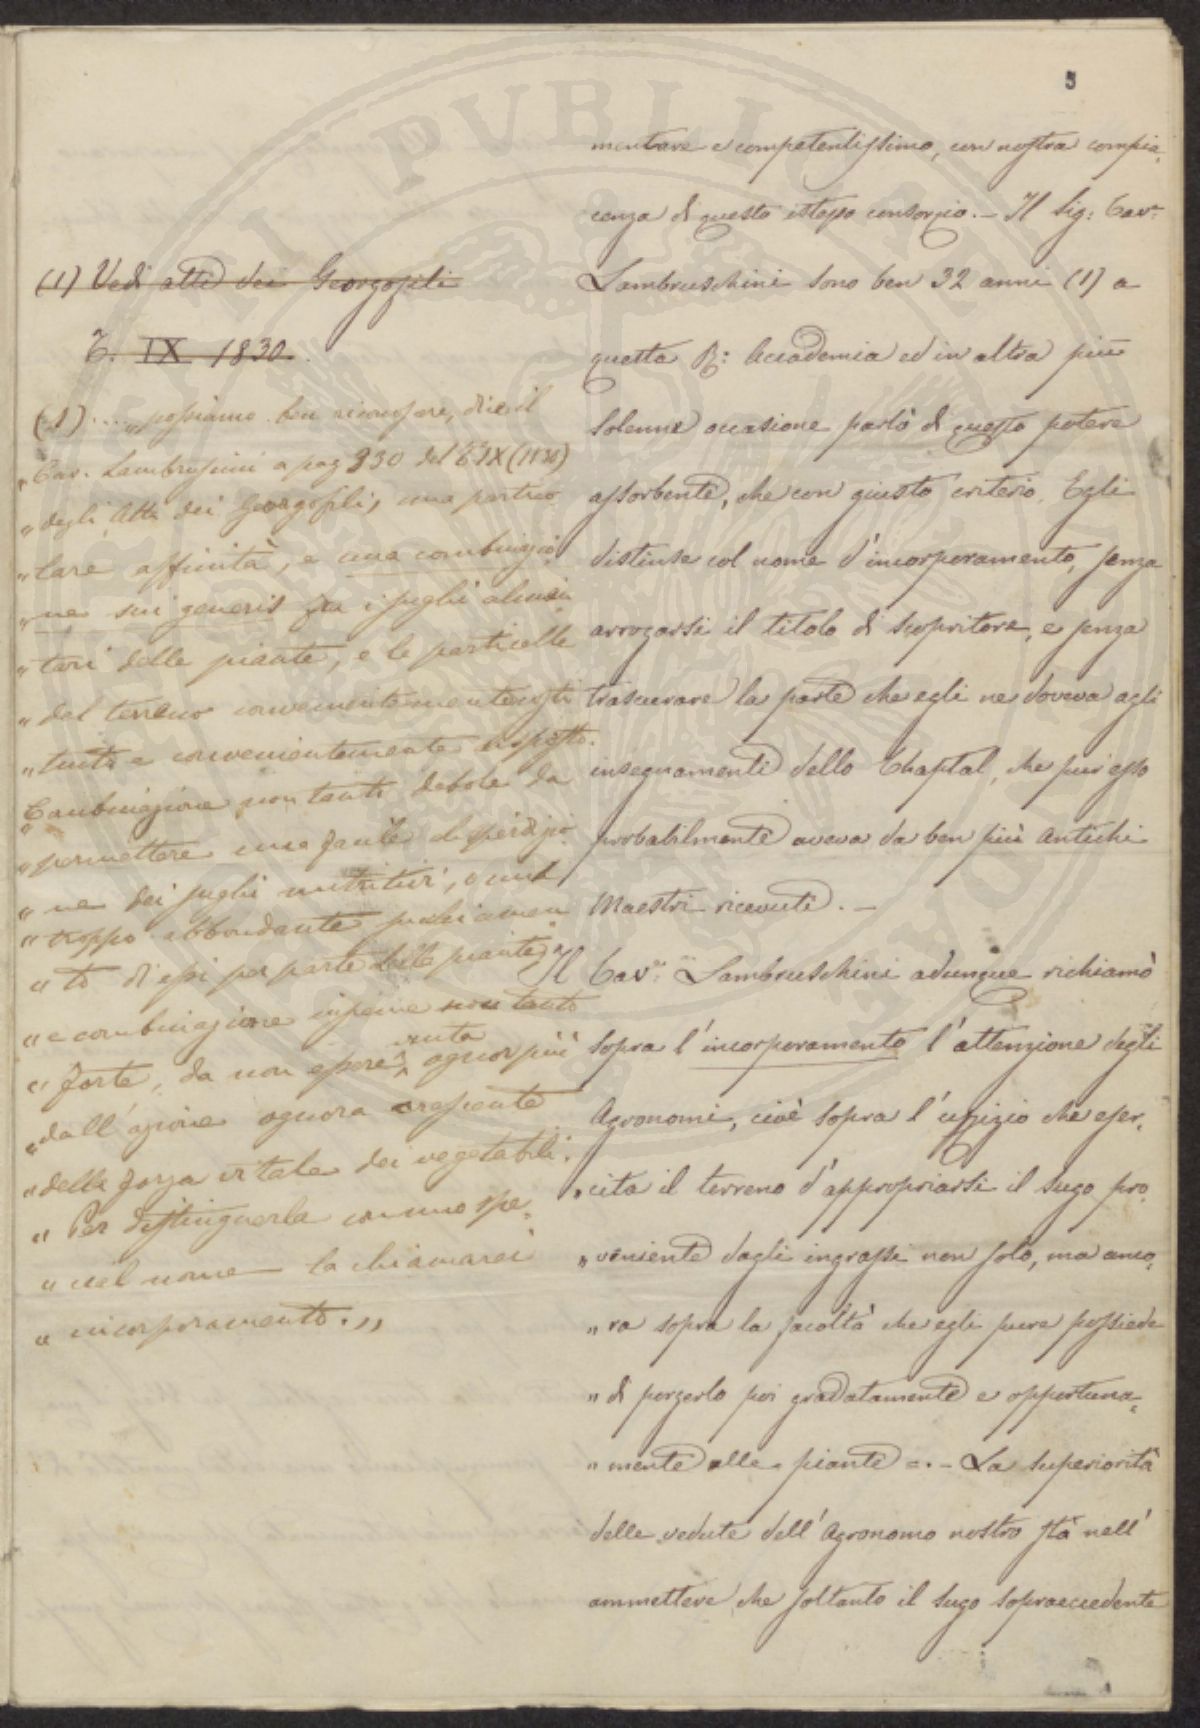 5
mentare e competentissimo, con nostra compia„
cenza di questo istesso consorzio. — Il Sig: Cavr.
Lambruschini sono ben 32 anni (1) a
questa R: Accademia ed in altra più
solenne occasione parlò di questo potere
assorbente, che con giusto criterio Egli
distinse col nome d'incorporamento, senza
arrogarsi il titolo di scopritore, e senza
trascurare la parte che egli ne doveva agli
insegnamenti dello Chaptal, che pur esso
probabilmente aveva da ben più antichi
Maestri ricevuti. —
Il Cavr. Lambruschini adunque richiamò
sopra l'incorporamento l'attenzione degli
Agronomi, cioè sopra l'uffizio che eser„
„cita il terreno d'appropriarsi il sugo pro„
„veniente dagli ingrassi non solo, ma anco„
„ra sopra la facoltà che egli pure possiede
„di porgerlo poi gradatamente e opportuna„
„mente alle piante =. — La superiorità
delle vedute dell'Agronomo nostro stà nell'
ammettere che soltanto il sugo sopraeccedente
(1) Vedi atti dei Georgofili
T. IX 1830.
(1) .... „possiamo ben riconoscere, dice il
„Cav. Lambruschini a pag 330 del T. IX (1830)
„degli Atti dei Georgofili, una partico
„lare affinità, e una combinazio
„ne sui generis fra i sughi alimen
„tari delle piante, e le particelle
„del terreno convenientemente costi
„tuito e convenientemente disposto.
„Combinazione non tanto debole da
„permettere una facile dispersio
„ne dei sughi nutritivi, o un
„troppo abbondante succhiamen
„to di essi per parte delle piante;
„e combinazione insieme non tanto
„forte, da non essere vinta ognor più
„dall'azione ognora crescente
„della forza vitale dei vegetabili.
„Per distinguerla con uno spe„
„cial nome la chiamarei
„incorporamento.„